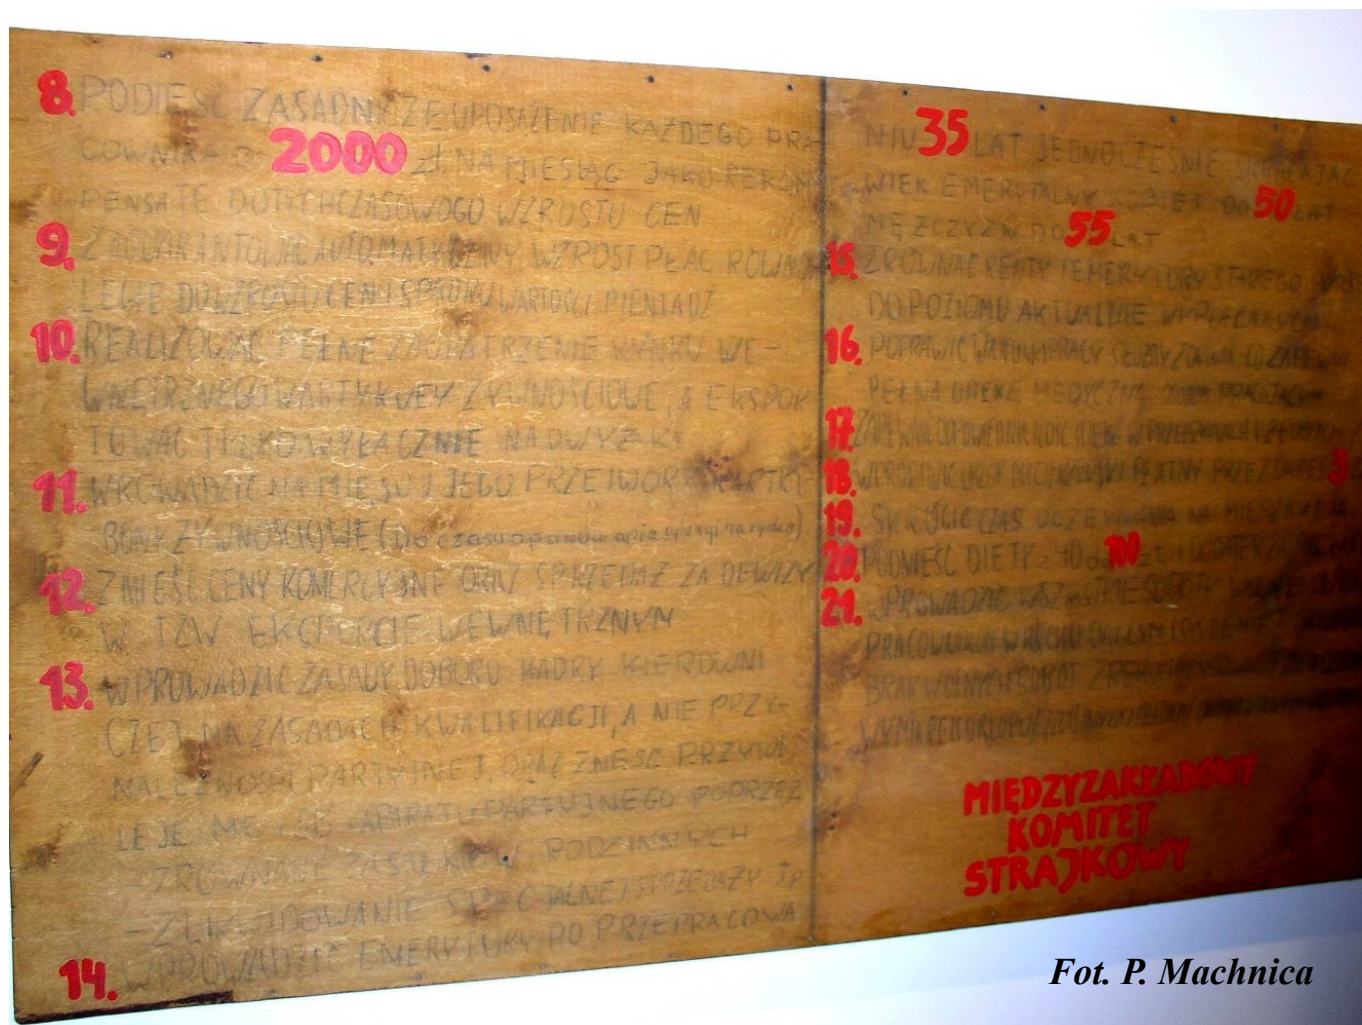 8. PODIEŚĆ ZASADNICZE UPOSAŻENIE KAŻDEGO PRA-
COWNIKA O 2000 ZŁ NA MIESIĄC JAKO REKOM-
PENSATĘ DOTYCHCZASOWOGO WZROSTU CEN
9. ZAGWARANTOWAĆ AUTOMATYCZNY WZROST PŁAC RÓWNO
LEGŁE DO WZROSTU CEN I SPADKU WARTOŚCI PIENIĄDZ
10. REALIZOWAĆ PEŁNE ZAOPATRZENIE RYNKU WE-
WNĘTRZNEGO W ARTYKUŁY ŻYWNOŚCIOWE, A EKSPOR
TOWAĆ TYLKO WYŁĄCZNIE NADWYŻKI
11. WROWADZIĆ NA MIĘSO I JEGO PRZETWORY KARTKI-
BONY ŻYWNOŚCIOWE (Do czasu opanowania sytuacji na rynku)
12. ZNIEŚĆ CENY KOMERCYJNE ORAZ SPRZEDAŻ ZA DEWIZY
W TZW EKSPORCIE WEWNĘTRZNYM
13. WPROWADZIĆ ZASADY DOBORU KADRY KIEROWNI
CZEJ NA ZASADACH KWALIFIKACJI, A NIE PRZY-
NALEŻNOŚCI PARTYJNEJ, ORAZ ZNIEŚĆ PRZYWI
LEJE APARATU PARTYJNEGO POPRZEZ
- ZRÓWNANIE ZASIŁKÓW RODZINNYCH
- ZLIKWIDOWANIE SPECJALNEJ SPRZEDAŻY ITP
14. WPROWADZIĆ EMERYTURY PO PRZEPRACOWA
NIU 35 LAT JEDNOCZEŚNIE SKRACAJĄC
WIEK EMERYTALNY KOBIET DO 50 LAT
MĘŻCZYZN DO 55 LAT
15. ZRÓWNAĆ RENTY I EMERYTURY STAREGO
DO POZIOMU AKTUALNIE WYPŁACANYCH
16. POPRAWIĆ WARUNKI PRACY SŁUŻBY ZDROWIA CO ZAPEWNI
PEŁNĄ OPIEKĘ MEDYCZNĄ OSOBOM PRACUJĄCYM
17. ZAPEWNIĆ ODPOWIEDNIĄ ILOŚĆ MIEJSC W PRZEDSZKOLACH I ŻŁOBKACH
18. WPROWADZIĆ URLOP MACIERZYŃSKI PŁATNY PRZEZ OKRES 3
19. SKRÓCIĆ CZAS OCZEKIWANIA NA MIESZKANIA
20. PODNIEŚĆ DIETY z 40 do 100 zł I DODATEK ZA
21. WPROWADZIĆ WSZYSTKIE SOBOTY WOLNE
PRACOWNIKOM W RUCHU CIĄGŁYM I SYSTEMIE
BRAK WOLNYCH SOBÓT ZREKOMPENSOWAĆ
WYMIAREM URLOPU
MIĘDZYZAKŁADOWY
KOMITET
STRAJKOWY
Fot. P. Machnica